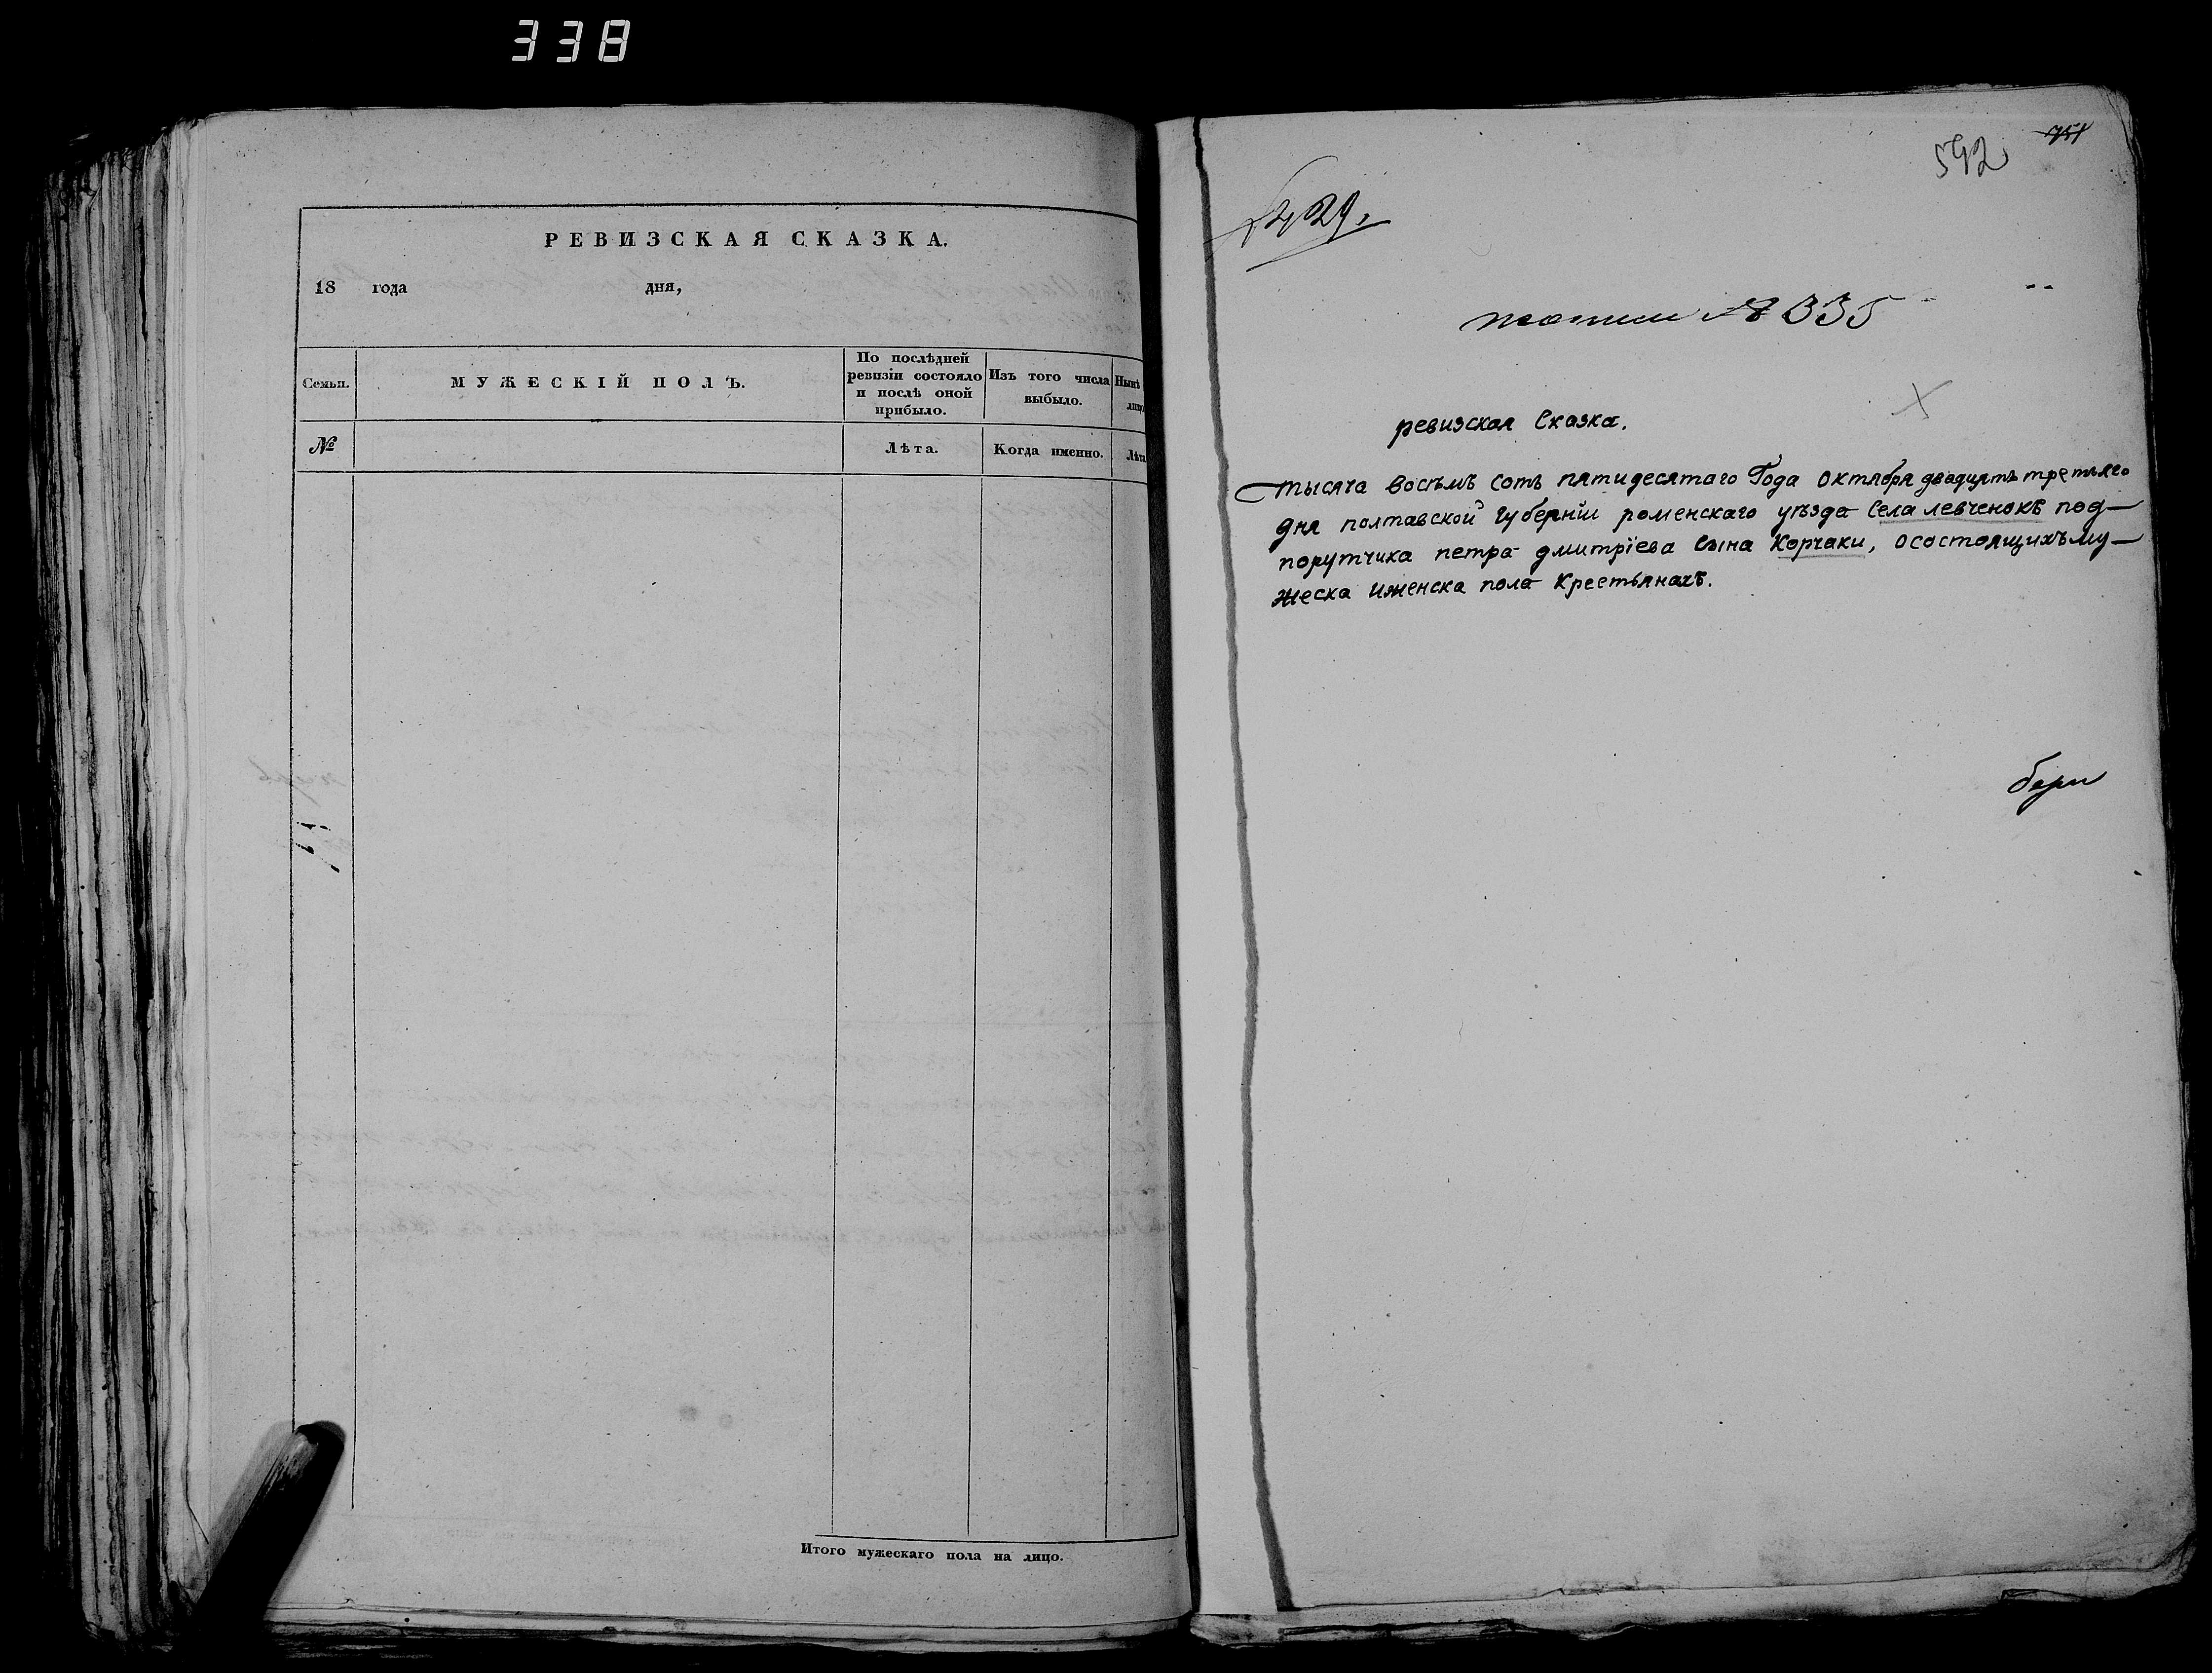 338
РЕВИЗСКАЯ СКАЗКА.
18 года дня,
Семьи.
МУЖЕСКІЙ ПОЛЪ.
По послѣдней ревизіи состояло и послѣ оной прибыло.
Изъ того числа выбыло.
Нынѣ лицо
№
Лѣта.
Когда именно.
Лѣта
Итого мужескаго пола на лицо.
751
592
№ 335
ревизская Сказка.
тысяча восемъ сотъ пятидесятаго Года октября двадцать третьяго
дня полтавской губерніи роменскаго уѣзда Села левченокъ под-
порутчика петра дмитріева Сына Корчаки, осостоящихъ му-
жеска иженска пола Крестьянахъ.